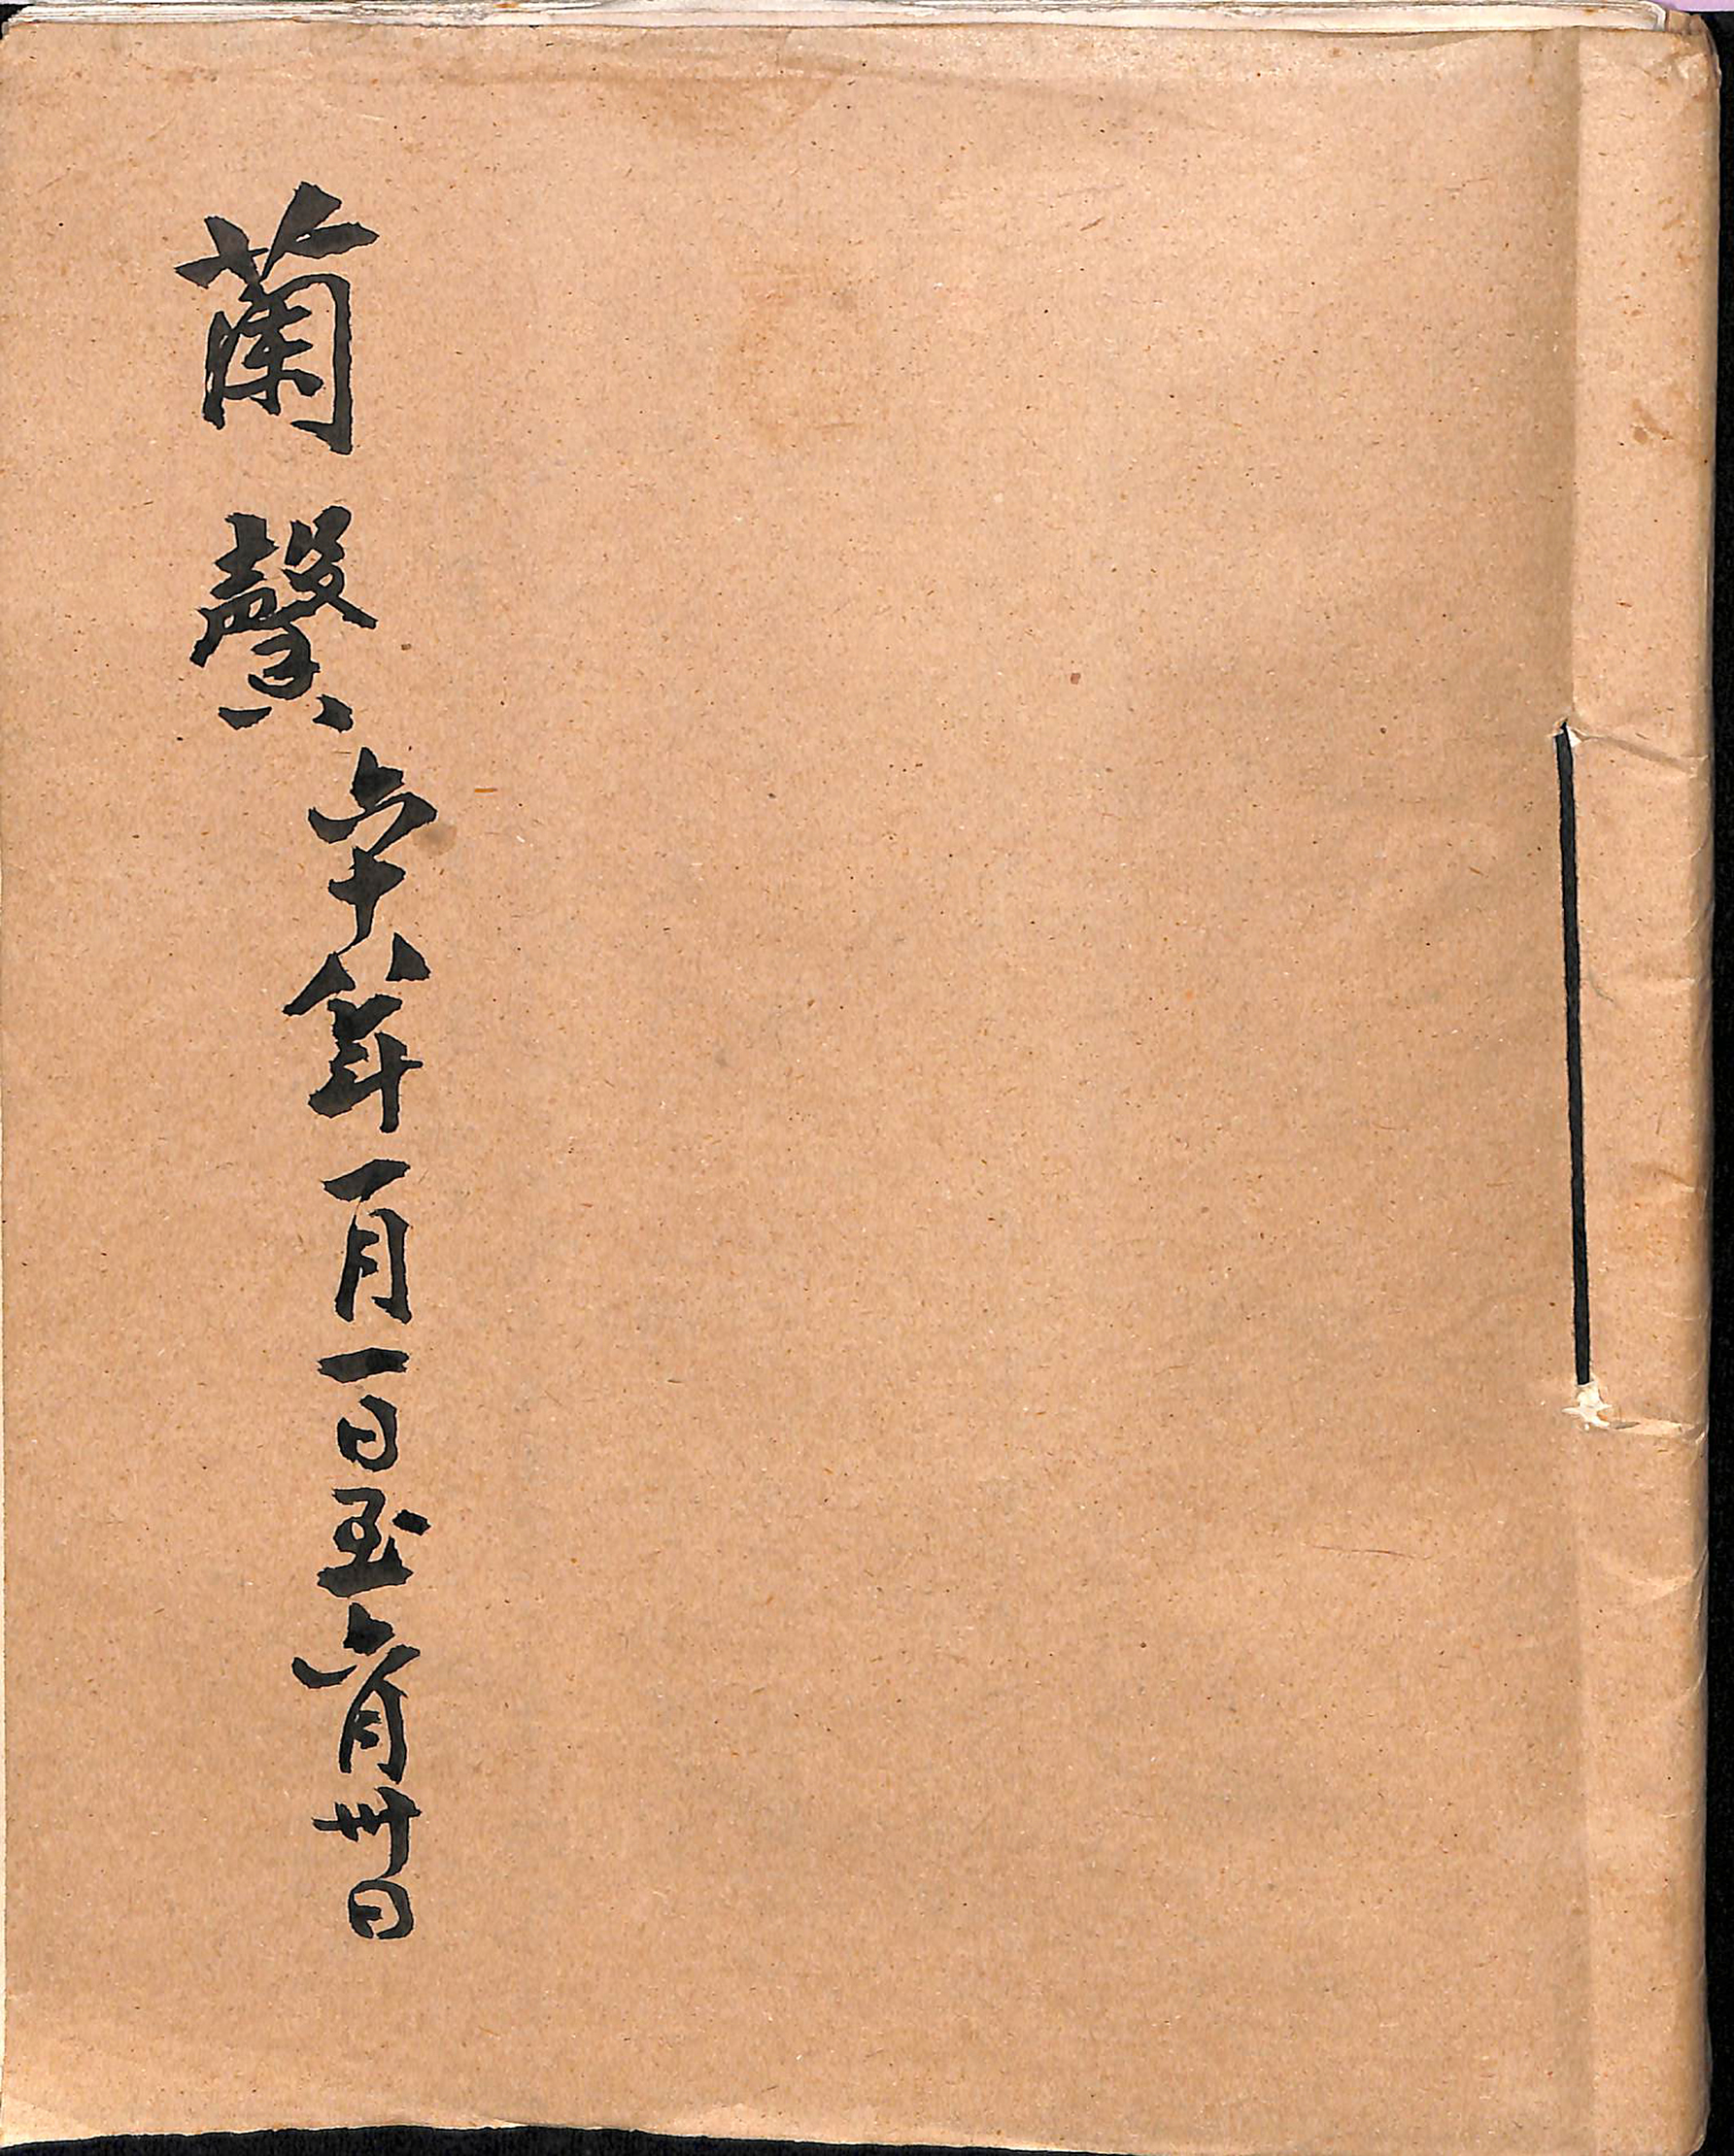 蘭馨六十八年一月一日至六月卅日